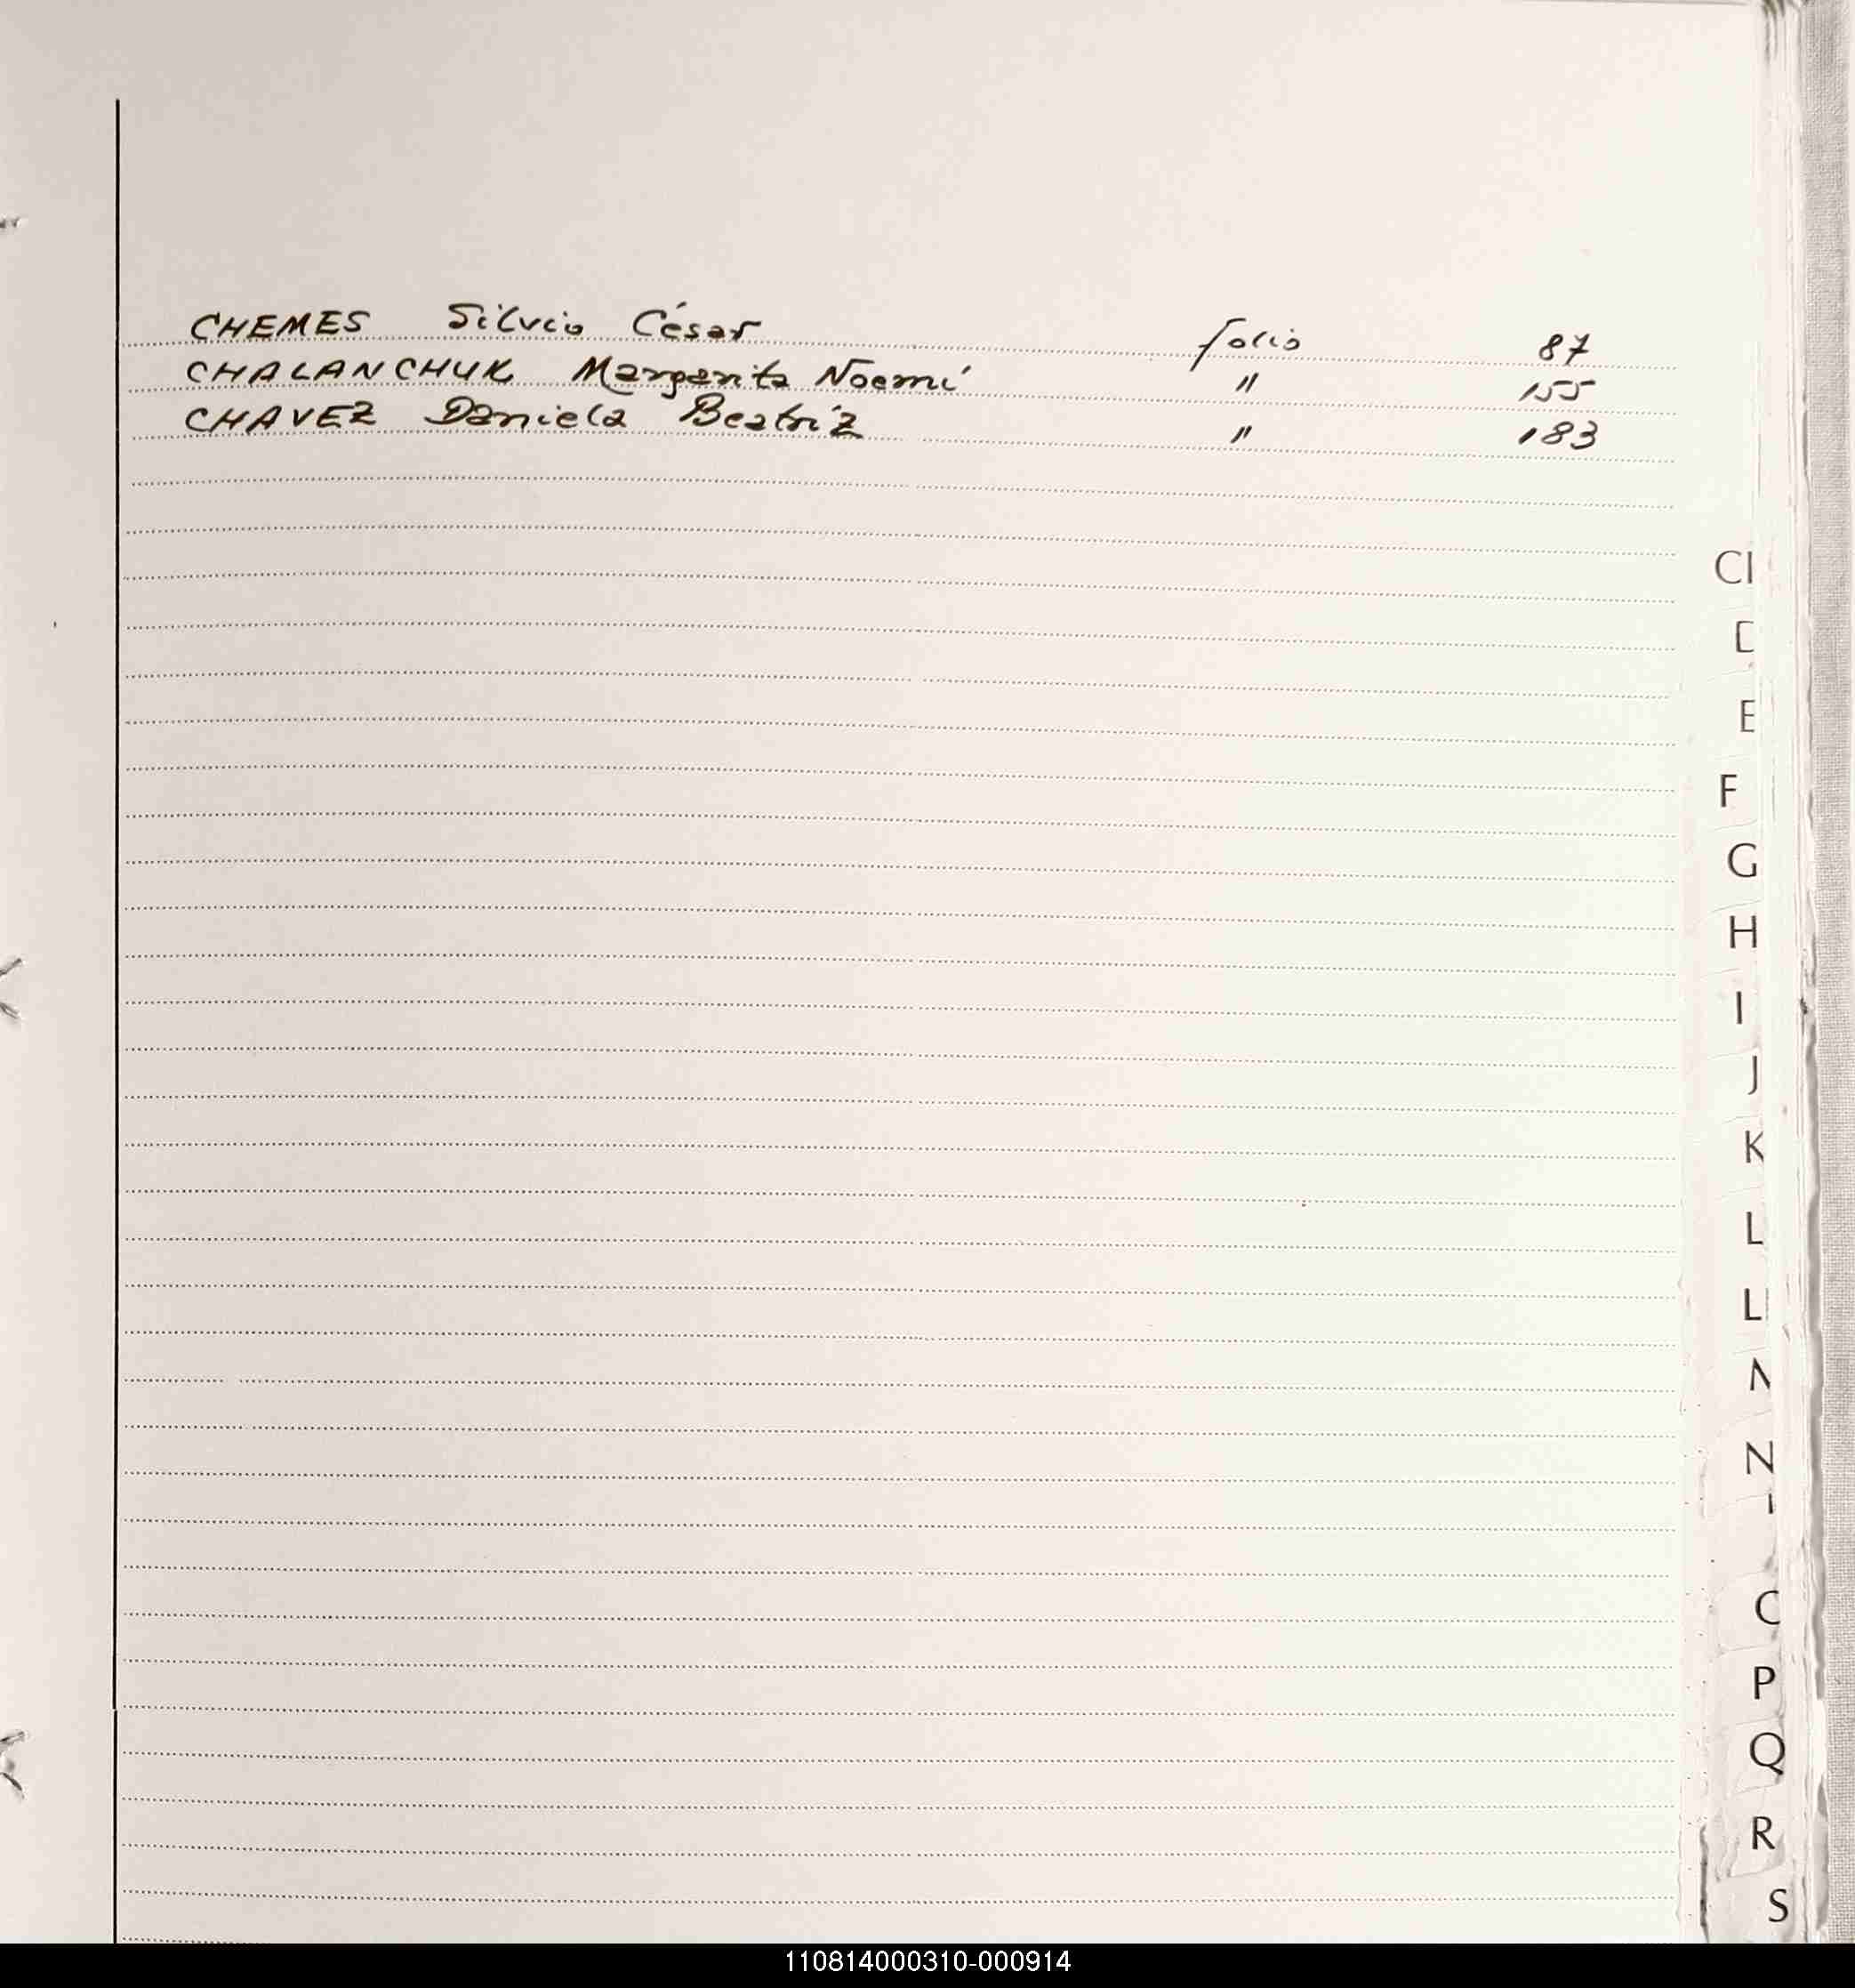 CHEMES Silvio César folio 87
CHALANCHUK Margarita Noemí " 155
CHAVEZ Daniela Beatriz " 183
E
F
G
H
I
J
K
L
N
P
Q
R
S
110814000310-000914